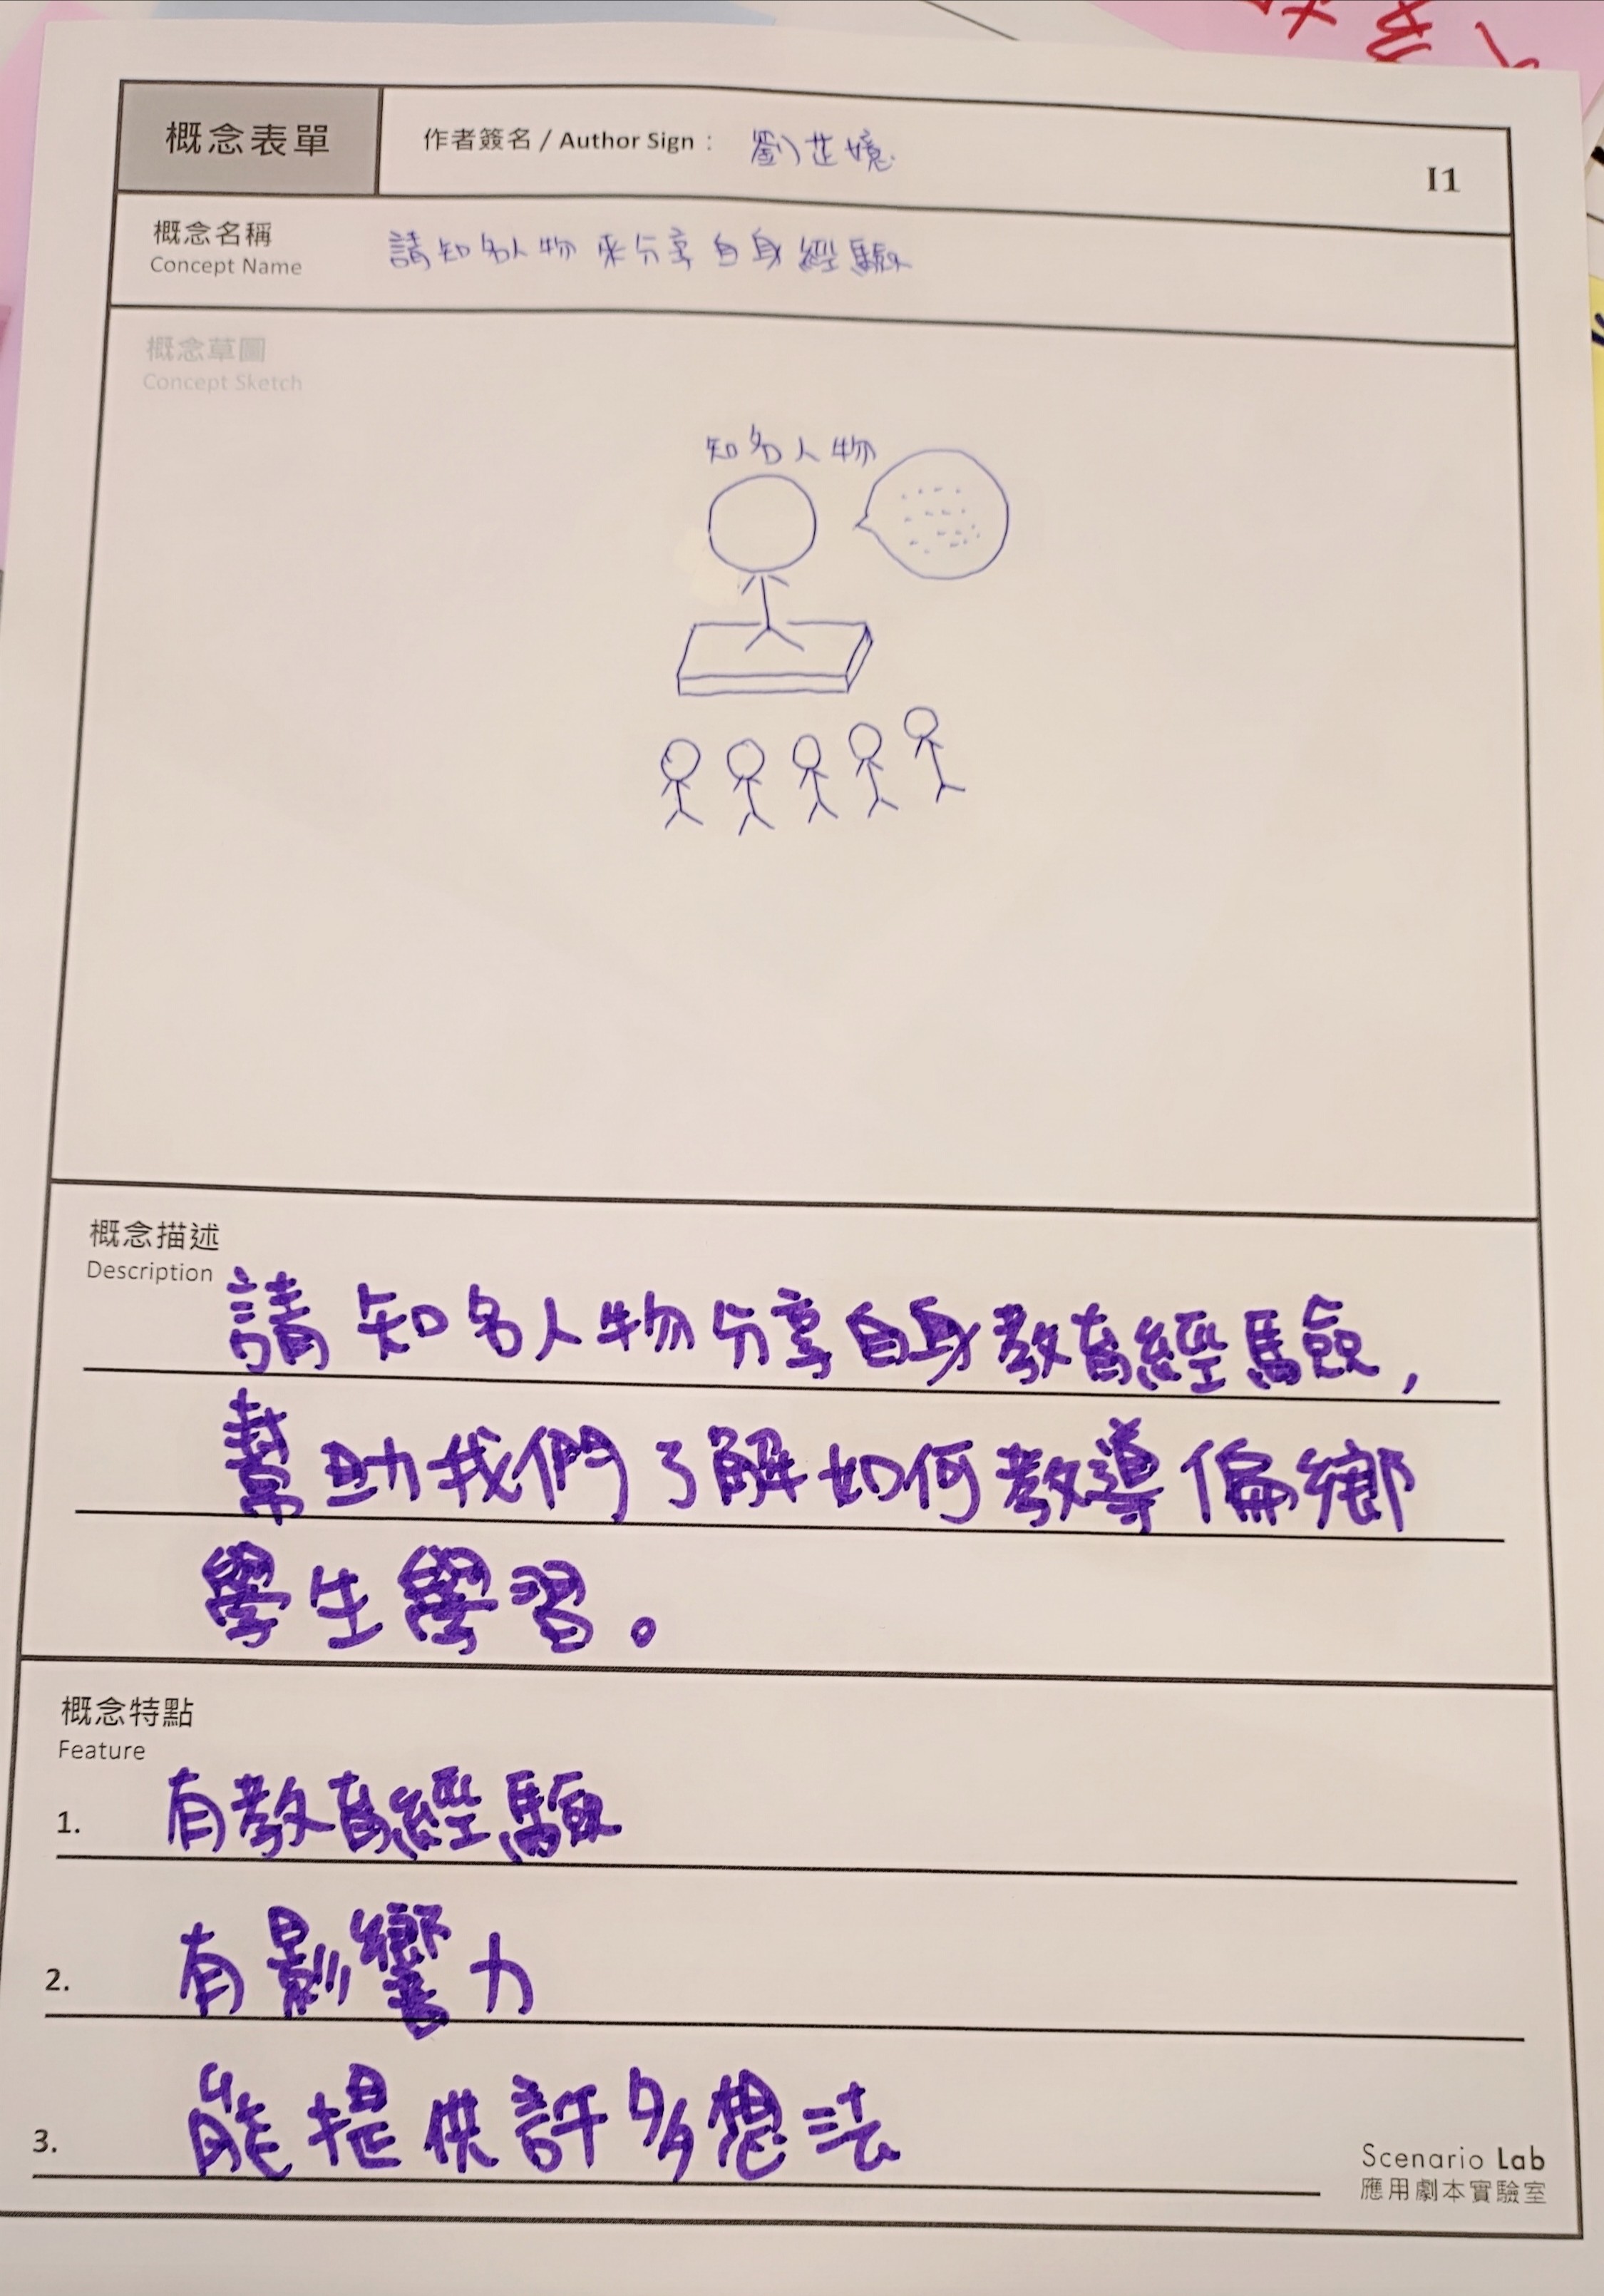 概念表單
作者簽名 / Author Sign： 劉芷嬑
I1
概念名稱
Concept Name
請知名人物來分享自身經驗
概念草圖
Concept Sketch
知名人物
概念描述
Description
請知名人物分享自身教育經驗，
幫助我們了解如何教導偏鄉
學生學習。
概念特點
Feature
1. 有教育經驗
2. 有影響力
3. 能提供許多想法
Scenario Lab
應用劇本實驗室